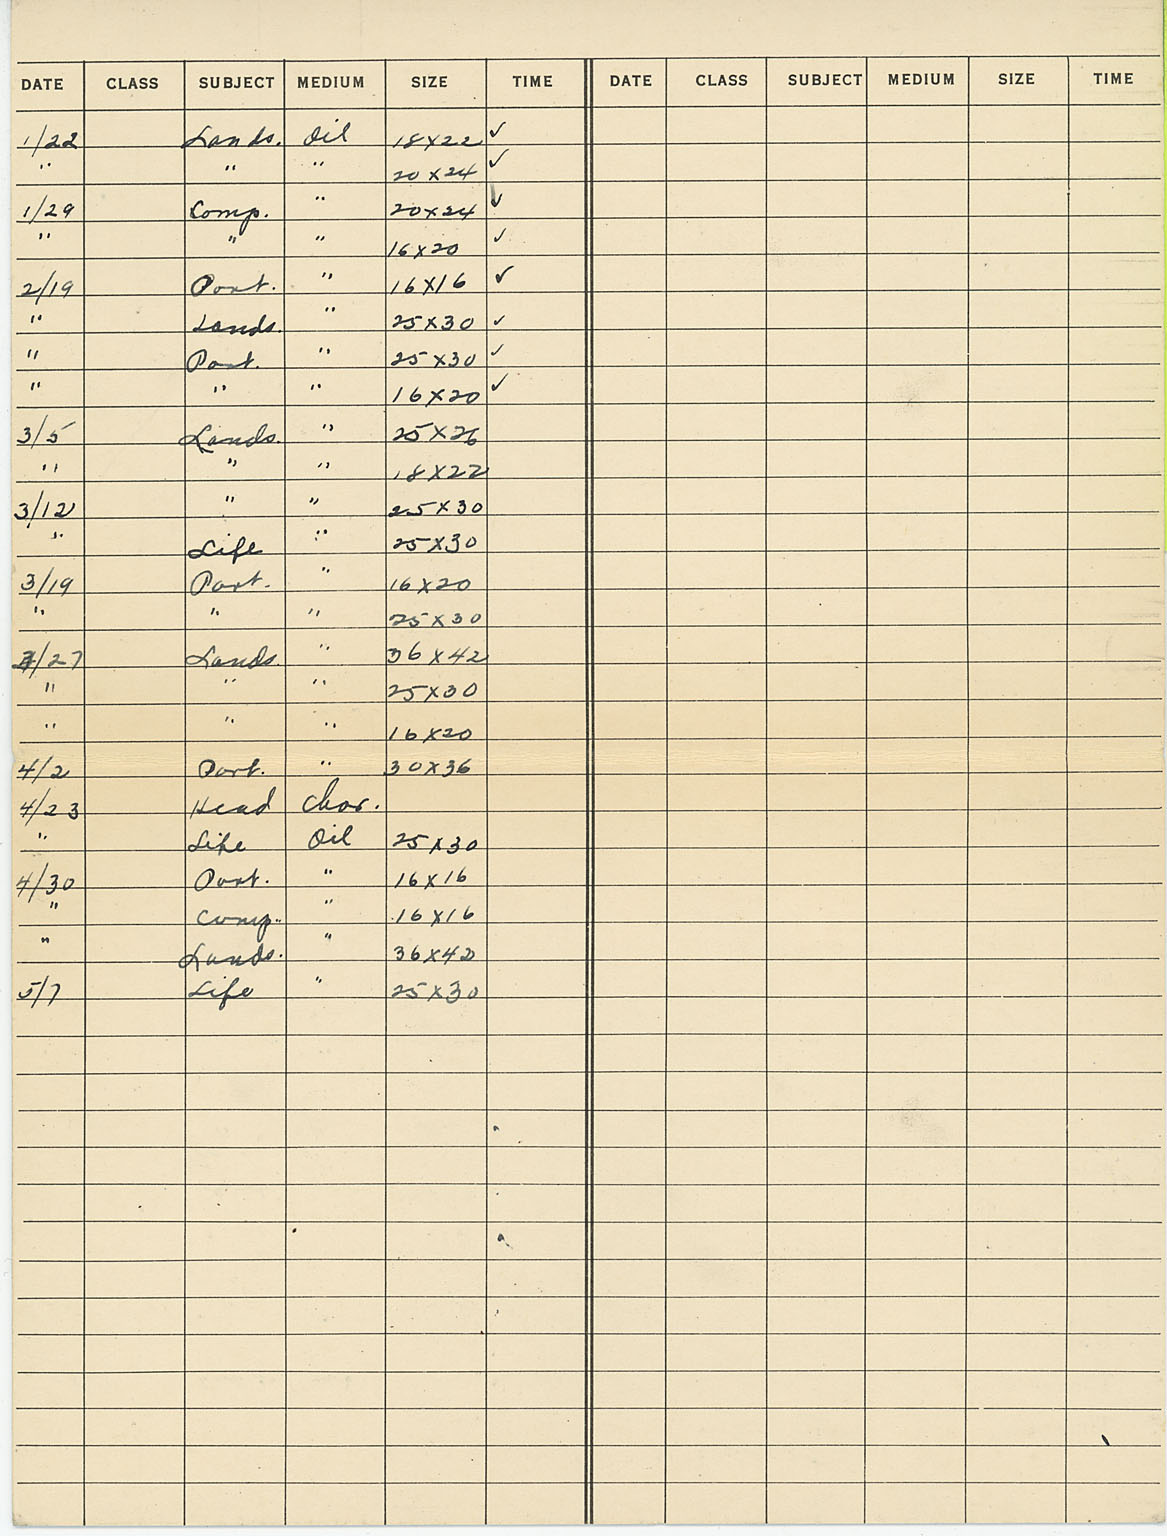 DATE CLASS SUBJECT MEDIUM SIZE TIME DATE CLASS SUBJECT MEDIUM SIZE TIME
1/22 Lands. Oil 18x22 ✓
" " " 20x24 ✓
1/29 Comp. " 20x24 ✓
" " " 16x20 ✓
2/19 Port. " 16x16 ✓
" Lands. " 25x30 ✓
" Port. " 25x30 ✓
" " " 16x20 ✓
3/5 Lands. " 25x26
" " " 18x22
3/12 " " 25x30
" Life " 25x30
3/19 Port. " 16x20
" " " 25x30
/27 Lands. " 36x42
" " " 25x30
" " " 16x20
4/2 Port. " 30x36
4/23 Head Char.
" Life Oil 25x30
4/30 Port. " 16x16
" Comp. " 16x16
" Lands. " 36x42
5/7 Life " 25x30